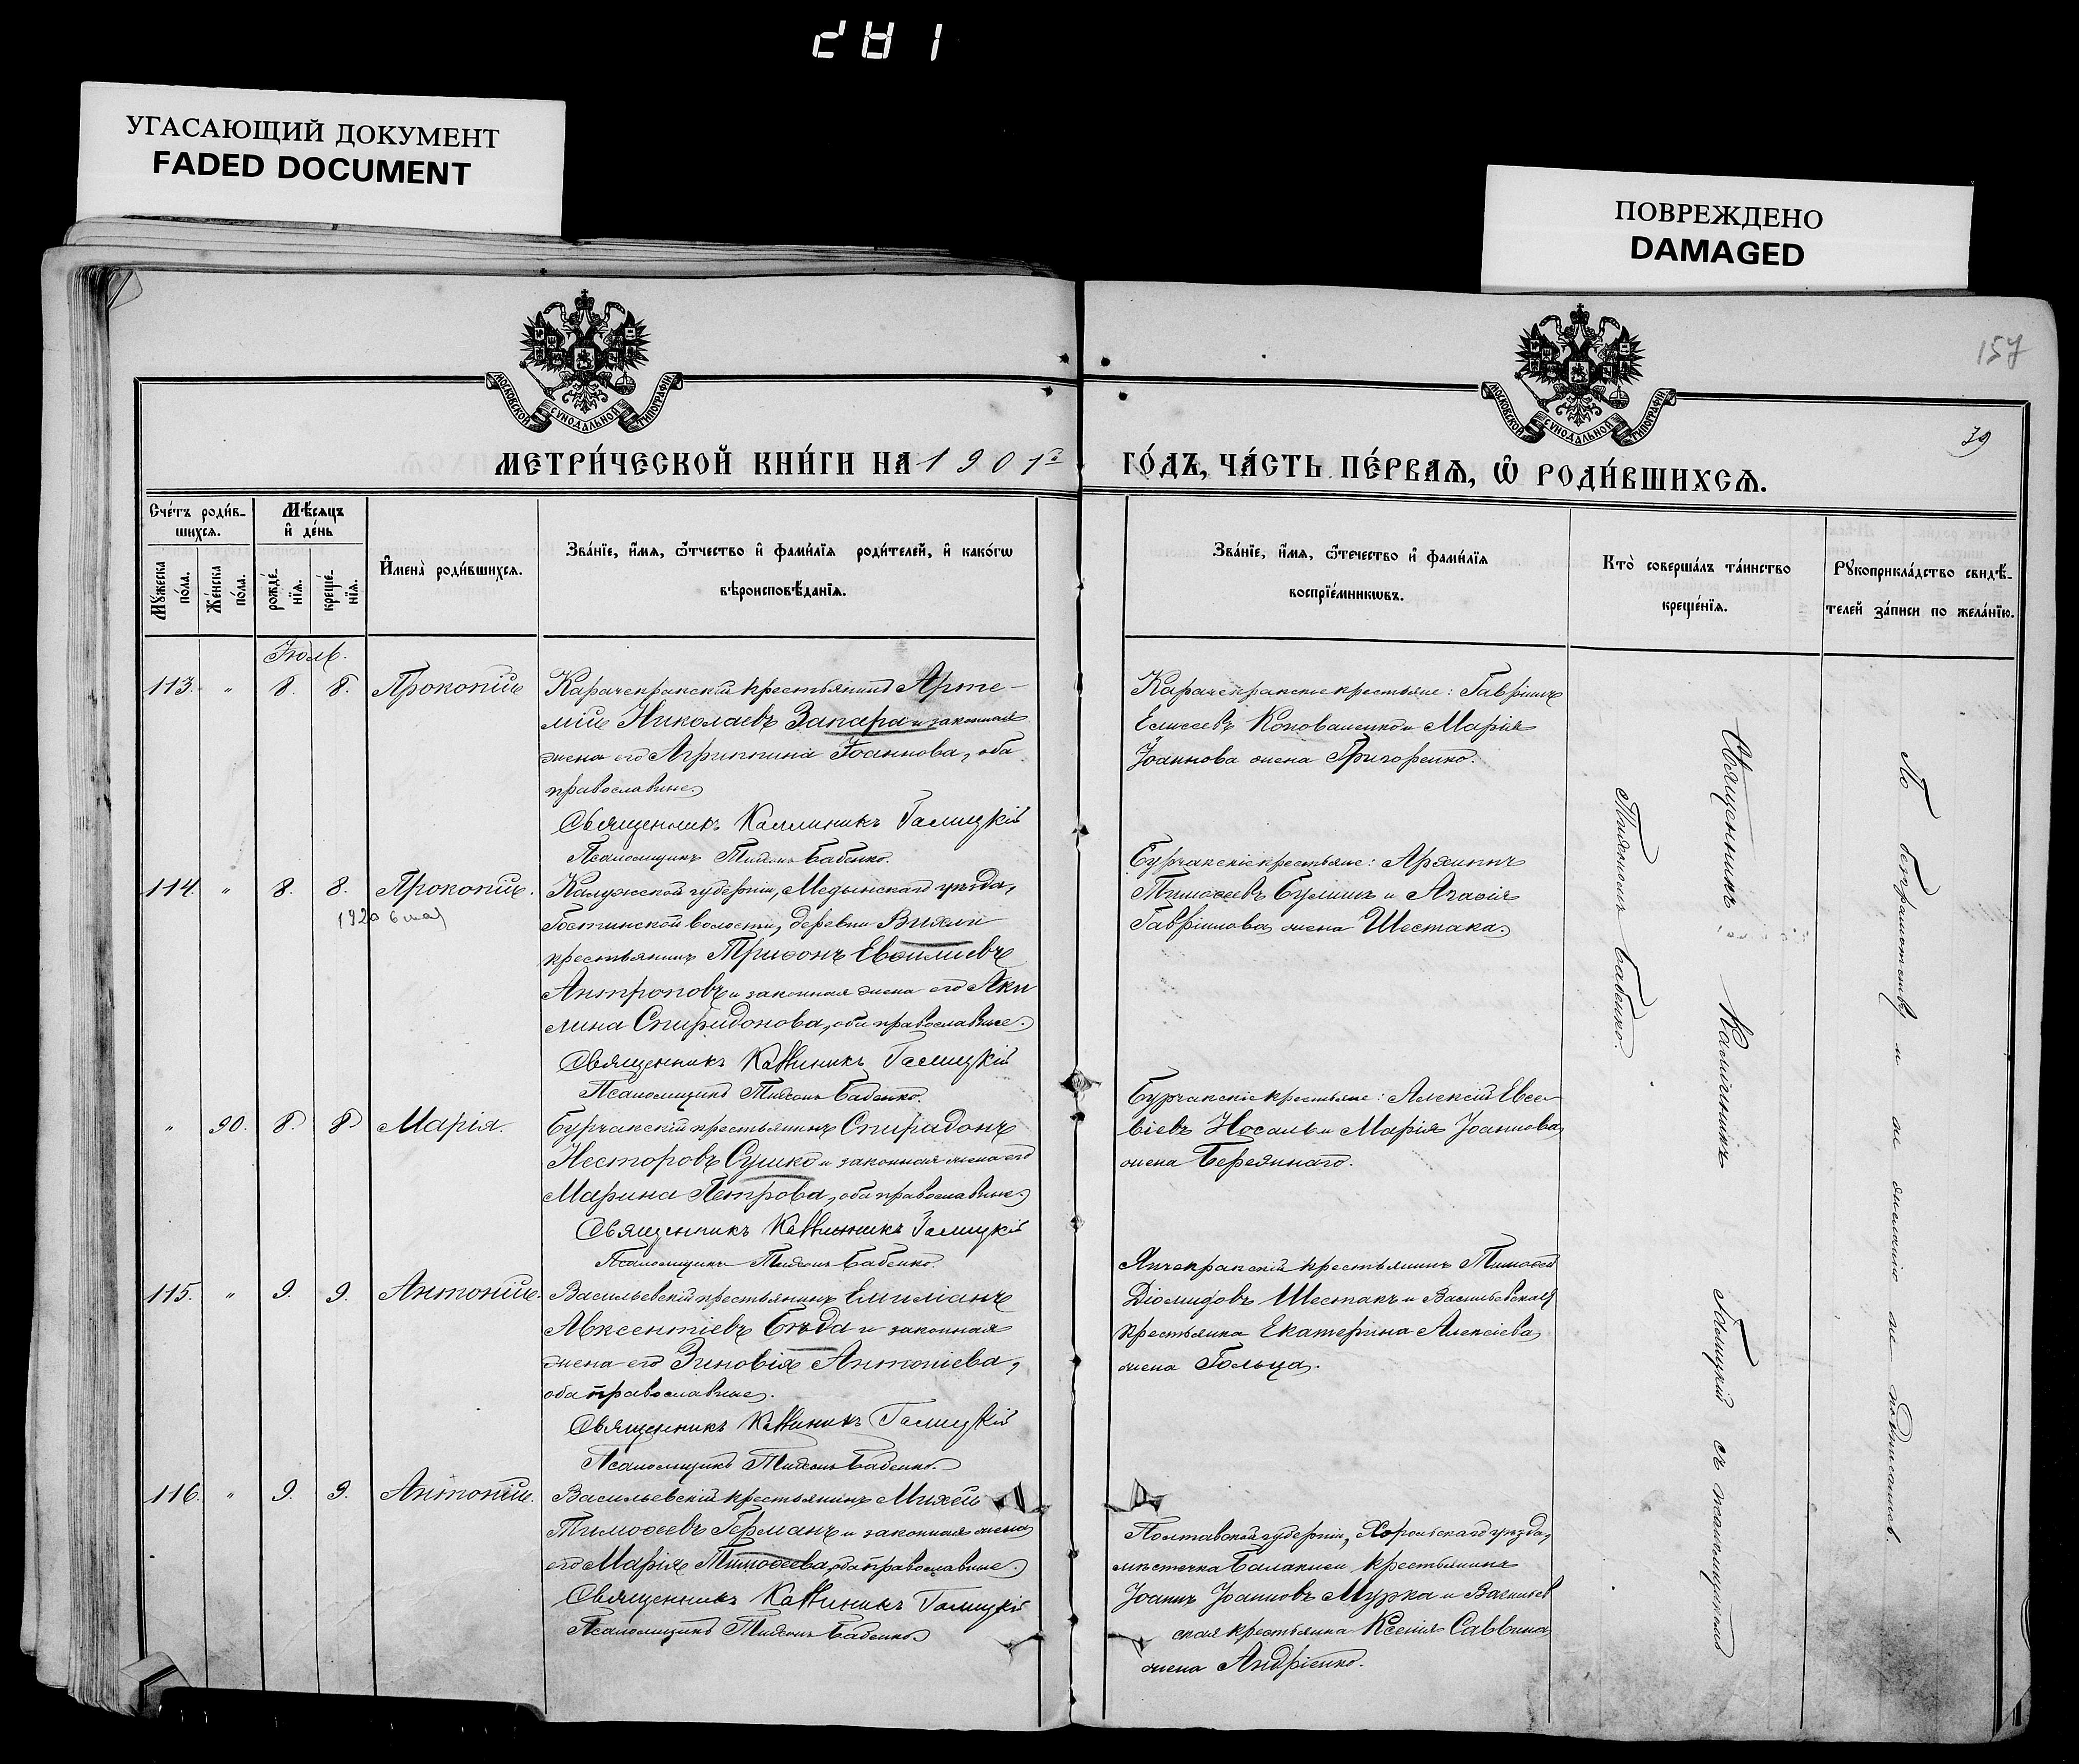 281
УГАСАЮЩИЙ ДОКУМЕНТ
FADED DOCUMENT
ПОВРЕЖДЕНО
DAMAGED
157
79
МОСКОВСКОЙ СѴНОДАЛЬНОЙ ТИПОГРАФІИ
МОСКОВСКОЙ СѴНОДАЛЬНОЙ ТИПОГРАФІИ
МЕТРИ́ЧЕСКОЙ КНИ́ГИ НА 1901й
ГО́ДЪ, ЧА́СТЬ ПЕ́РВАѦ, Ѽ РОДИ́ВШИХСѦ.
Сче́тъ роди́в-
шихсѧ.
Мꙋ́жеска по́ла.
Же́нска по́ла.
Мѣ́сѧцъ
и҆ де́нь
рожде́-нїѧ.
креще́-нїѧ.
И҆мена̀ роди́вшихсѧ.
Зва́нїе, и҆́мѧ, ѻ҆́тчество и҆ фами́лїѧ роди́телей, и҆ како́гѡ
вѣроисповѣ́данїѧ.
Зва́нїе, и҆́мѧ, ѻ҆́течество и҆ фами́лїѧ
воспрїе́мникѡвъ.
Кто̀ соверша́лъ та́инство
креще́нїѧ.
Рꙋкоприкла́дство свидѣ́-
телей за́писи по жела́нїю.
Іюль.
113. " 8. 8. Прокопій
Карачекракскій крестьянинъ Арте-
мій Николаевъ Запара и законная
жена его Агриппина Іоаннова, оба
православные.
Священникъ Каллиникъ Галицкій
Псаломщикъ Тихонъ Бабенко.
Карачекракские крестьяне: Гавріилъ
Елисеевъ Коноваленко и Марія
Іоаннова жена Григоренко.
114. " 8. 8. Прокопій.
1920 6 мая
Калужской губерніи, Медынскаго уѣзда,
Гостинской волости, деревни Вихли
крестьянинъ Трифонъ
Антроповъ и законная жена его Аки
лина Спиридонова, оба православные.
Священникъ Каллиникъ Галицкій
Псаломщикъ Тихонъ Бабенко.
Бурчакскіе крестьяне:
Тимофеевъ и Агафія
Гавріилова жена Шестака.
" 90. 8. 8. Марія.
Бурчакскій крестьянинъ Спиридонъ
Несторовъ Сушко и законная жена его
Марина Петрова, оба православные.
Священникъ Каллиникъ Галицкій
Псаломщикъ Тихонъ Бабенко.
Бурчакскіе крестьяне: Алексій Евсе-
віевъ Носаль и Марія Іоаннова
жена Берединаго.
115. " 9. 9. Антоній.
Васильевскій крестьянинъ Емиліанъ
Авксентіевъ Бѣда и законная
жена его Зиновія Антоніева,
оба православные.
Священникъ Каллиникъ Галицкій
Псаломщикъ Тихонъ Бабенко.
Янчекракскій крестьянинъ Тимофей
Діомидовъ Шестакъ и Васильевская
крестьянка Екатерина Алексіева
жена Гольца.
116. " 9. 9. Антоній.
Васильевскій крестьянинъ Михей
Тимофеевъ Германъ и законная жена
его Марія Тимофеева, оба православные.
Священникъ Каллиникъ Галицкій
Псаломщикъ Тихонъ Бабенко.
Полтавской губерніи, Хорольскаго уѣзда,
мѣстечка крестьянинъ
Іоаннъ Іоанновъ Мурка и Васильев
ская крестьянка Ксенія Саввина
жена Андріенко.
Священникъ Каллиникъ Галицкій съ псаломщикомъ
Тихономъ Бабенко.
По безграмотству и не желанію не подписались.